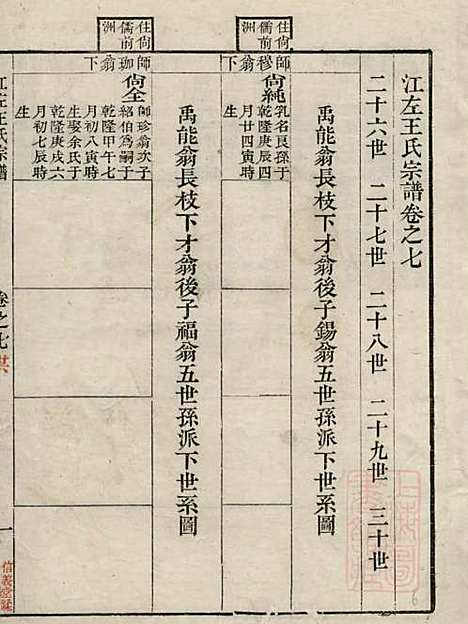 江左王氏宗譜卷之七
二十六世 二十七世 二十八世 二十九世 三十世
禹能翁長枝下才翁後子錫翁五世孫派下世系圖
住尙
儒前
洲
師穆翁下
尙純
乳名良孫于
乾隆庚辰四
月廿四寅時
生
禹能翁長枝下才翁後子福翁五世孫派下世系圖
住尙
儒前
洲
師珈翁下
尙全
師珍翁次子
紹伯爲嗣于
乾隆甲午七
月初八寅時
生娶余氏于
乾隆庚戌六
月初七辰時
生
江左王氏宗譜
卷之七
一
信義堂